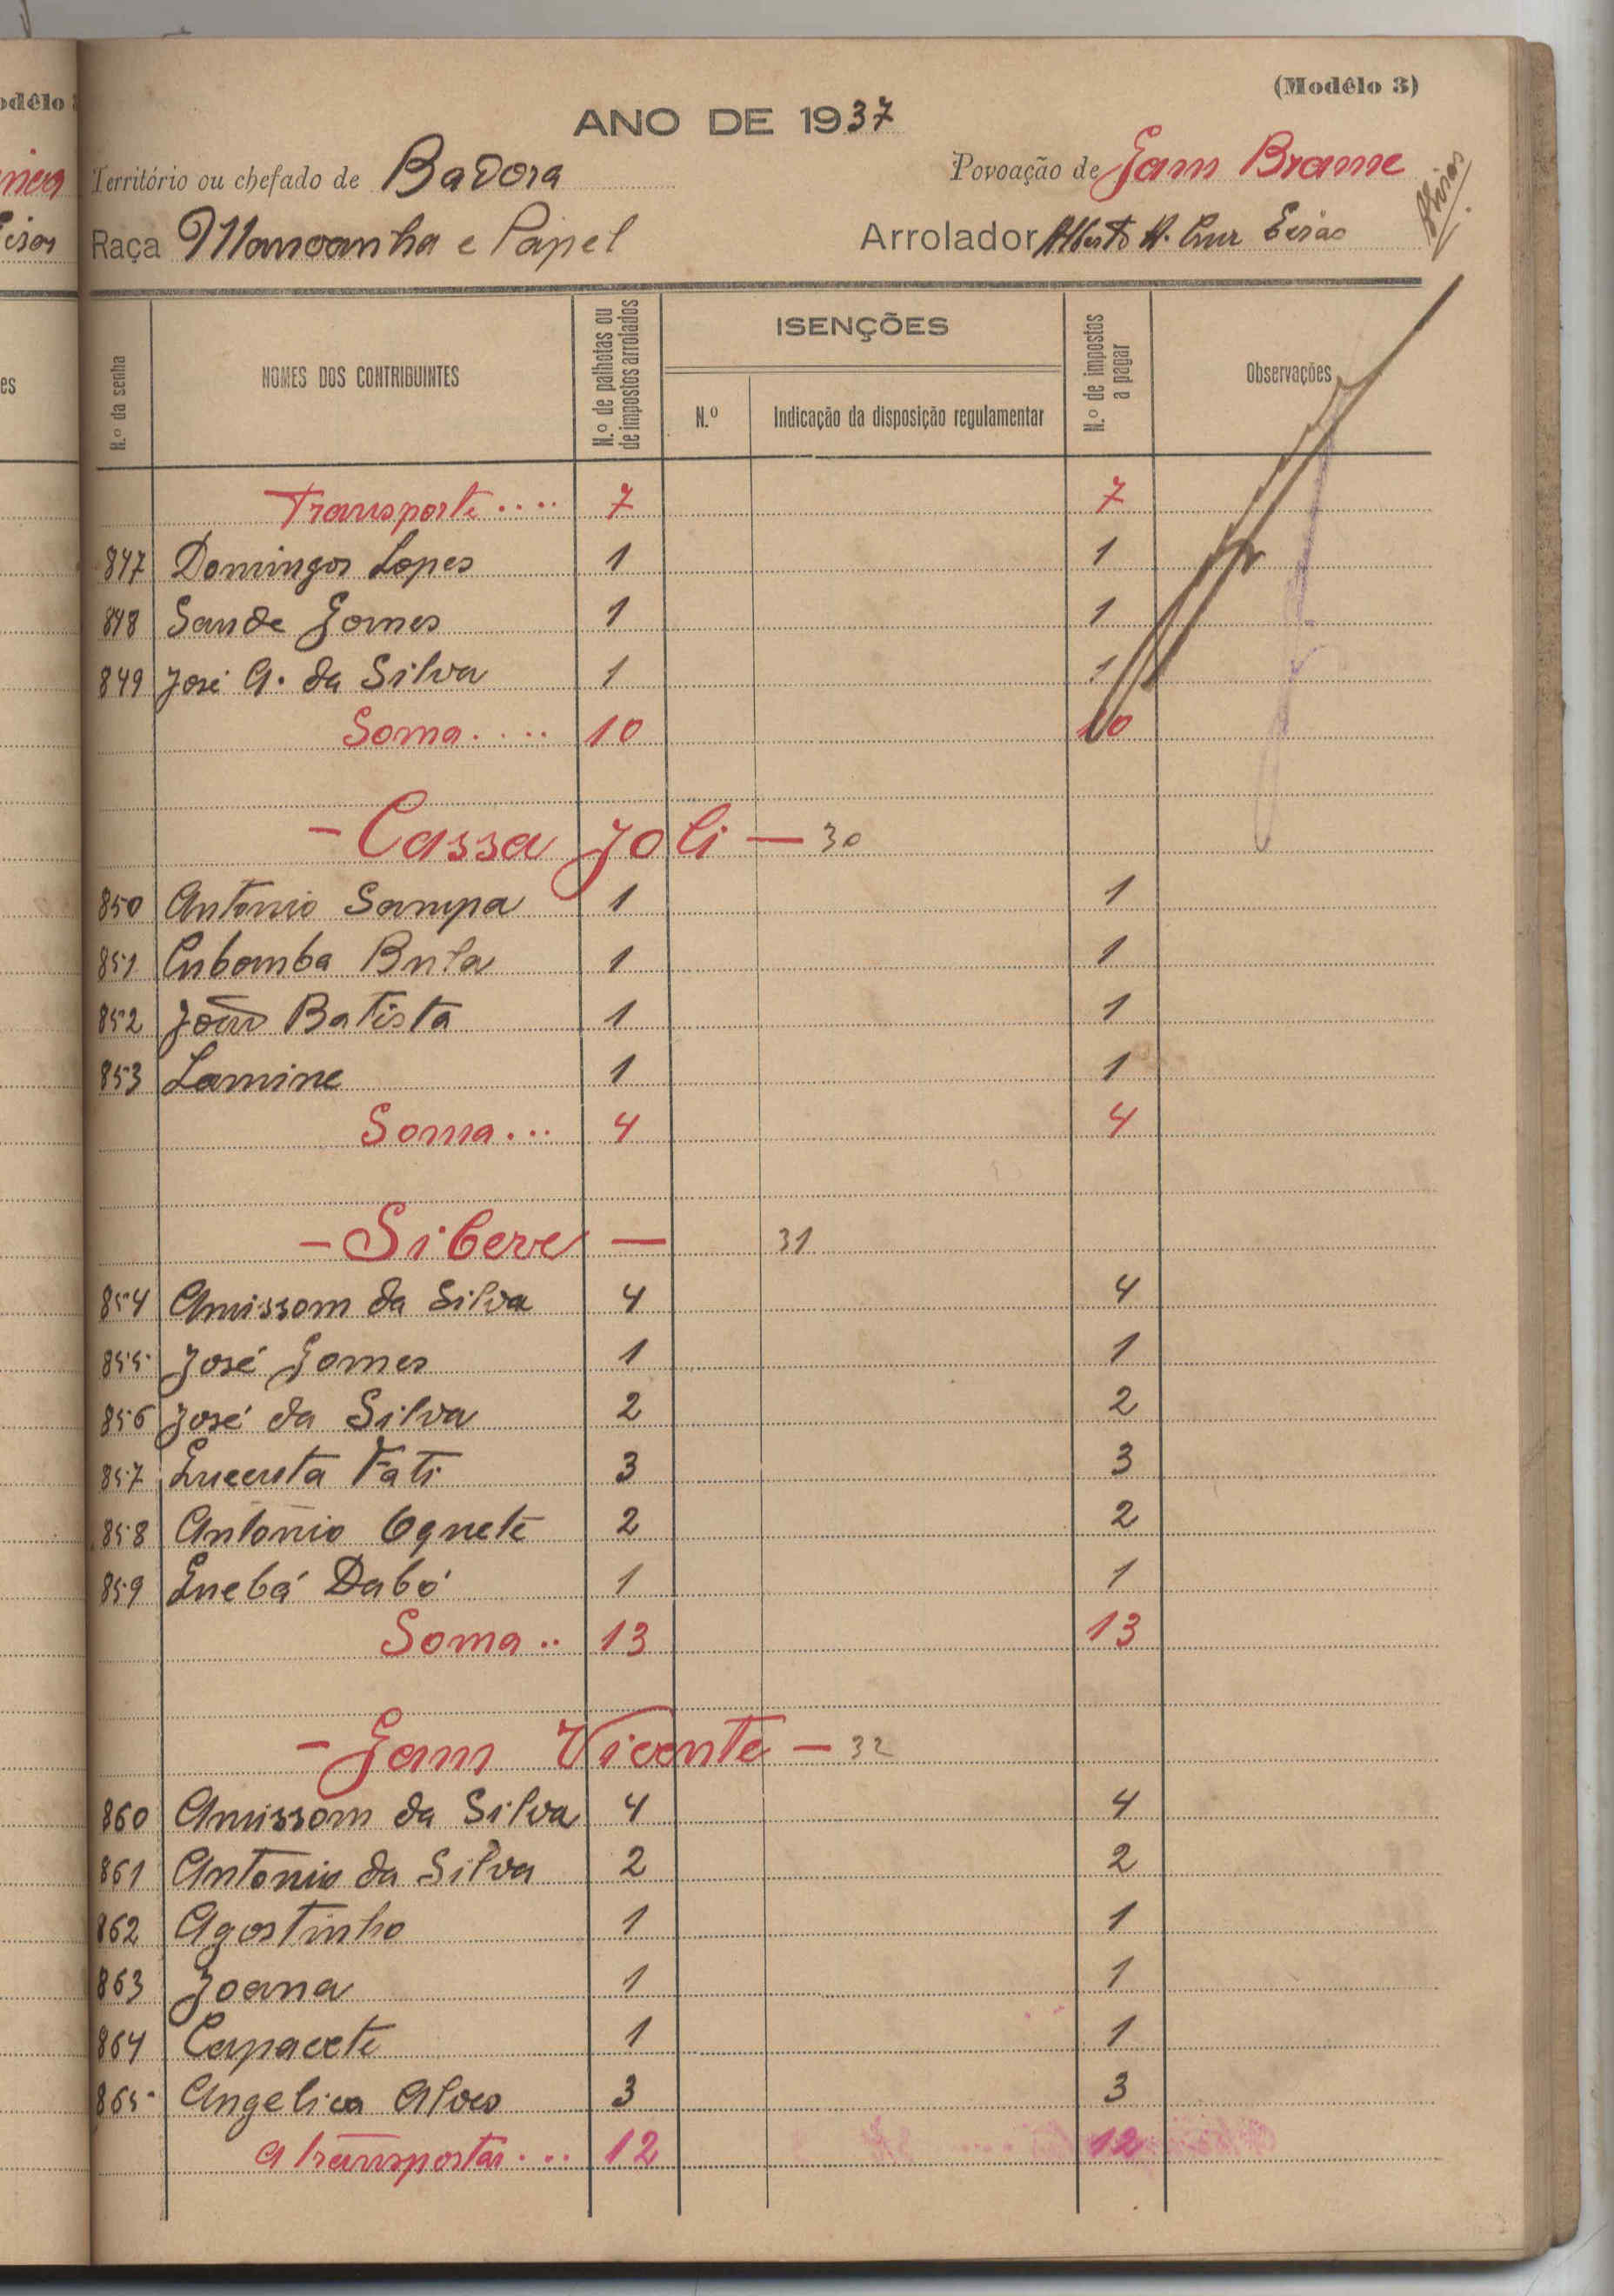 (Modêlo 3)
ANO DE 1937
Território ou chefado de Badora
Povoação de Gam Brame
Raça Mancanha e Papel
Arrolador Alberto A. Cruz Eiras
N.º da senha
NOMES DOS CONTRIBUINTES
N.º de palhotas ou de impostos arrolados
ISENÇÕES
N.º
Indicação da disposição regulamentar
N.º de impostos a pagar
Observações
Transporte .... 7 7
847 Domingos Lopes 1 1
848 Sande Gomes 1 1
849 José A. da Silva 1 1
Soma .... 10 10
- Cassa Joli - 30
850 Antonio Sampa 1 1
851 Cubomba Bula 1 1
852 João Batista 1 1
853 Lamine 1 1
Soma ... 4 4
- Sibere - 31
854 Amissom da Silva 4 4
855 José Gomes 1 1
856 José da Silva 2 2
857 Fati 3 3
858 Antonio Ognete 2 2
859 Quebá Dabó 1 1
Soma .. 13 13
- Gam Vicente - 32
860 Amissom da Silva 4 4
861 Antonio da Silva 2 2
862 Agostinho 1 1
863 Joana 1 1
864 Capacete 1 1
865 Angelica Alves 3 3
A transportar ... 12 12